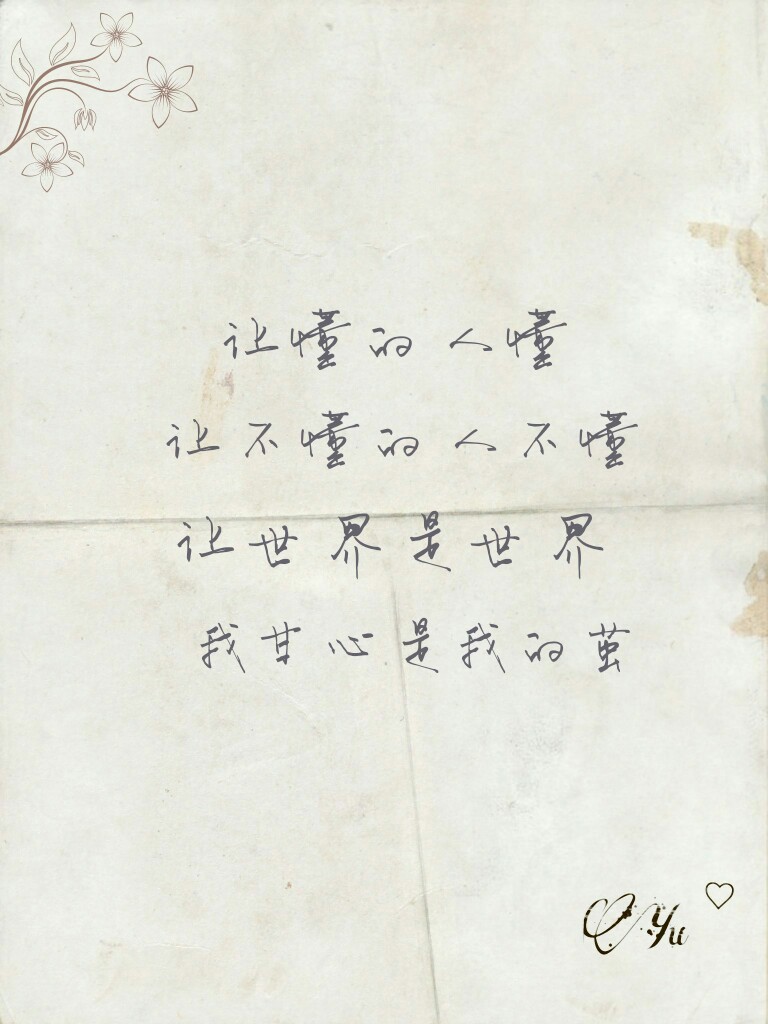 让懂的人懂
让不懂的人不懂
让世界是世界
我甘心是我的茧
Yu